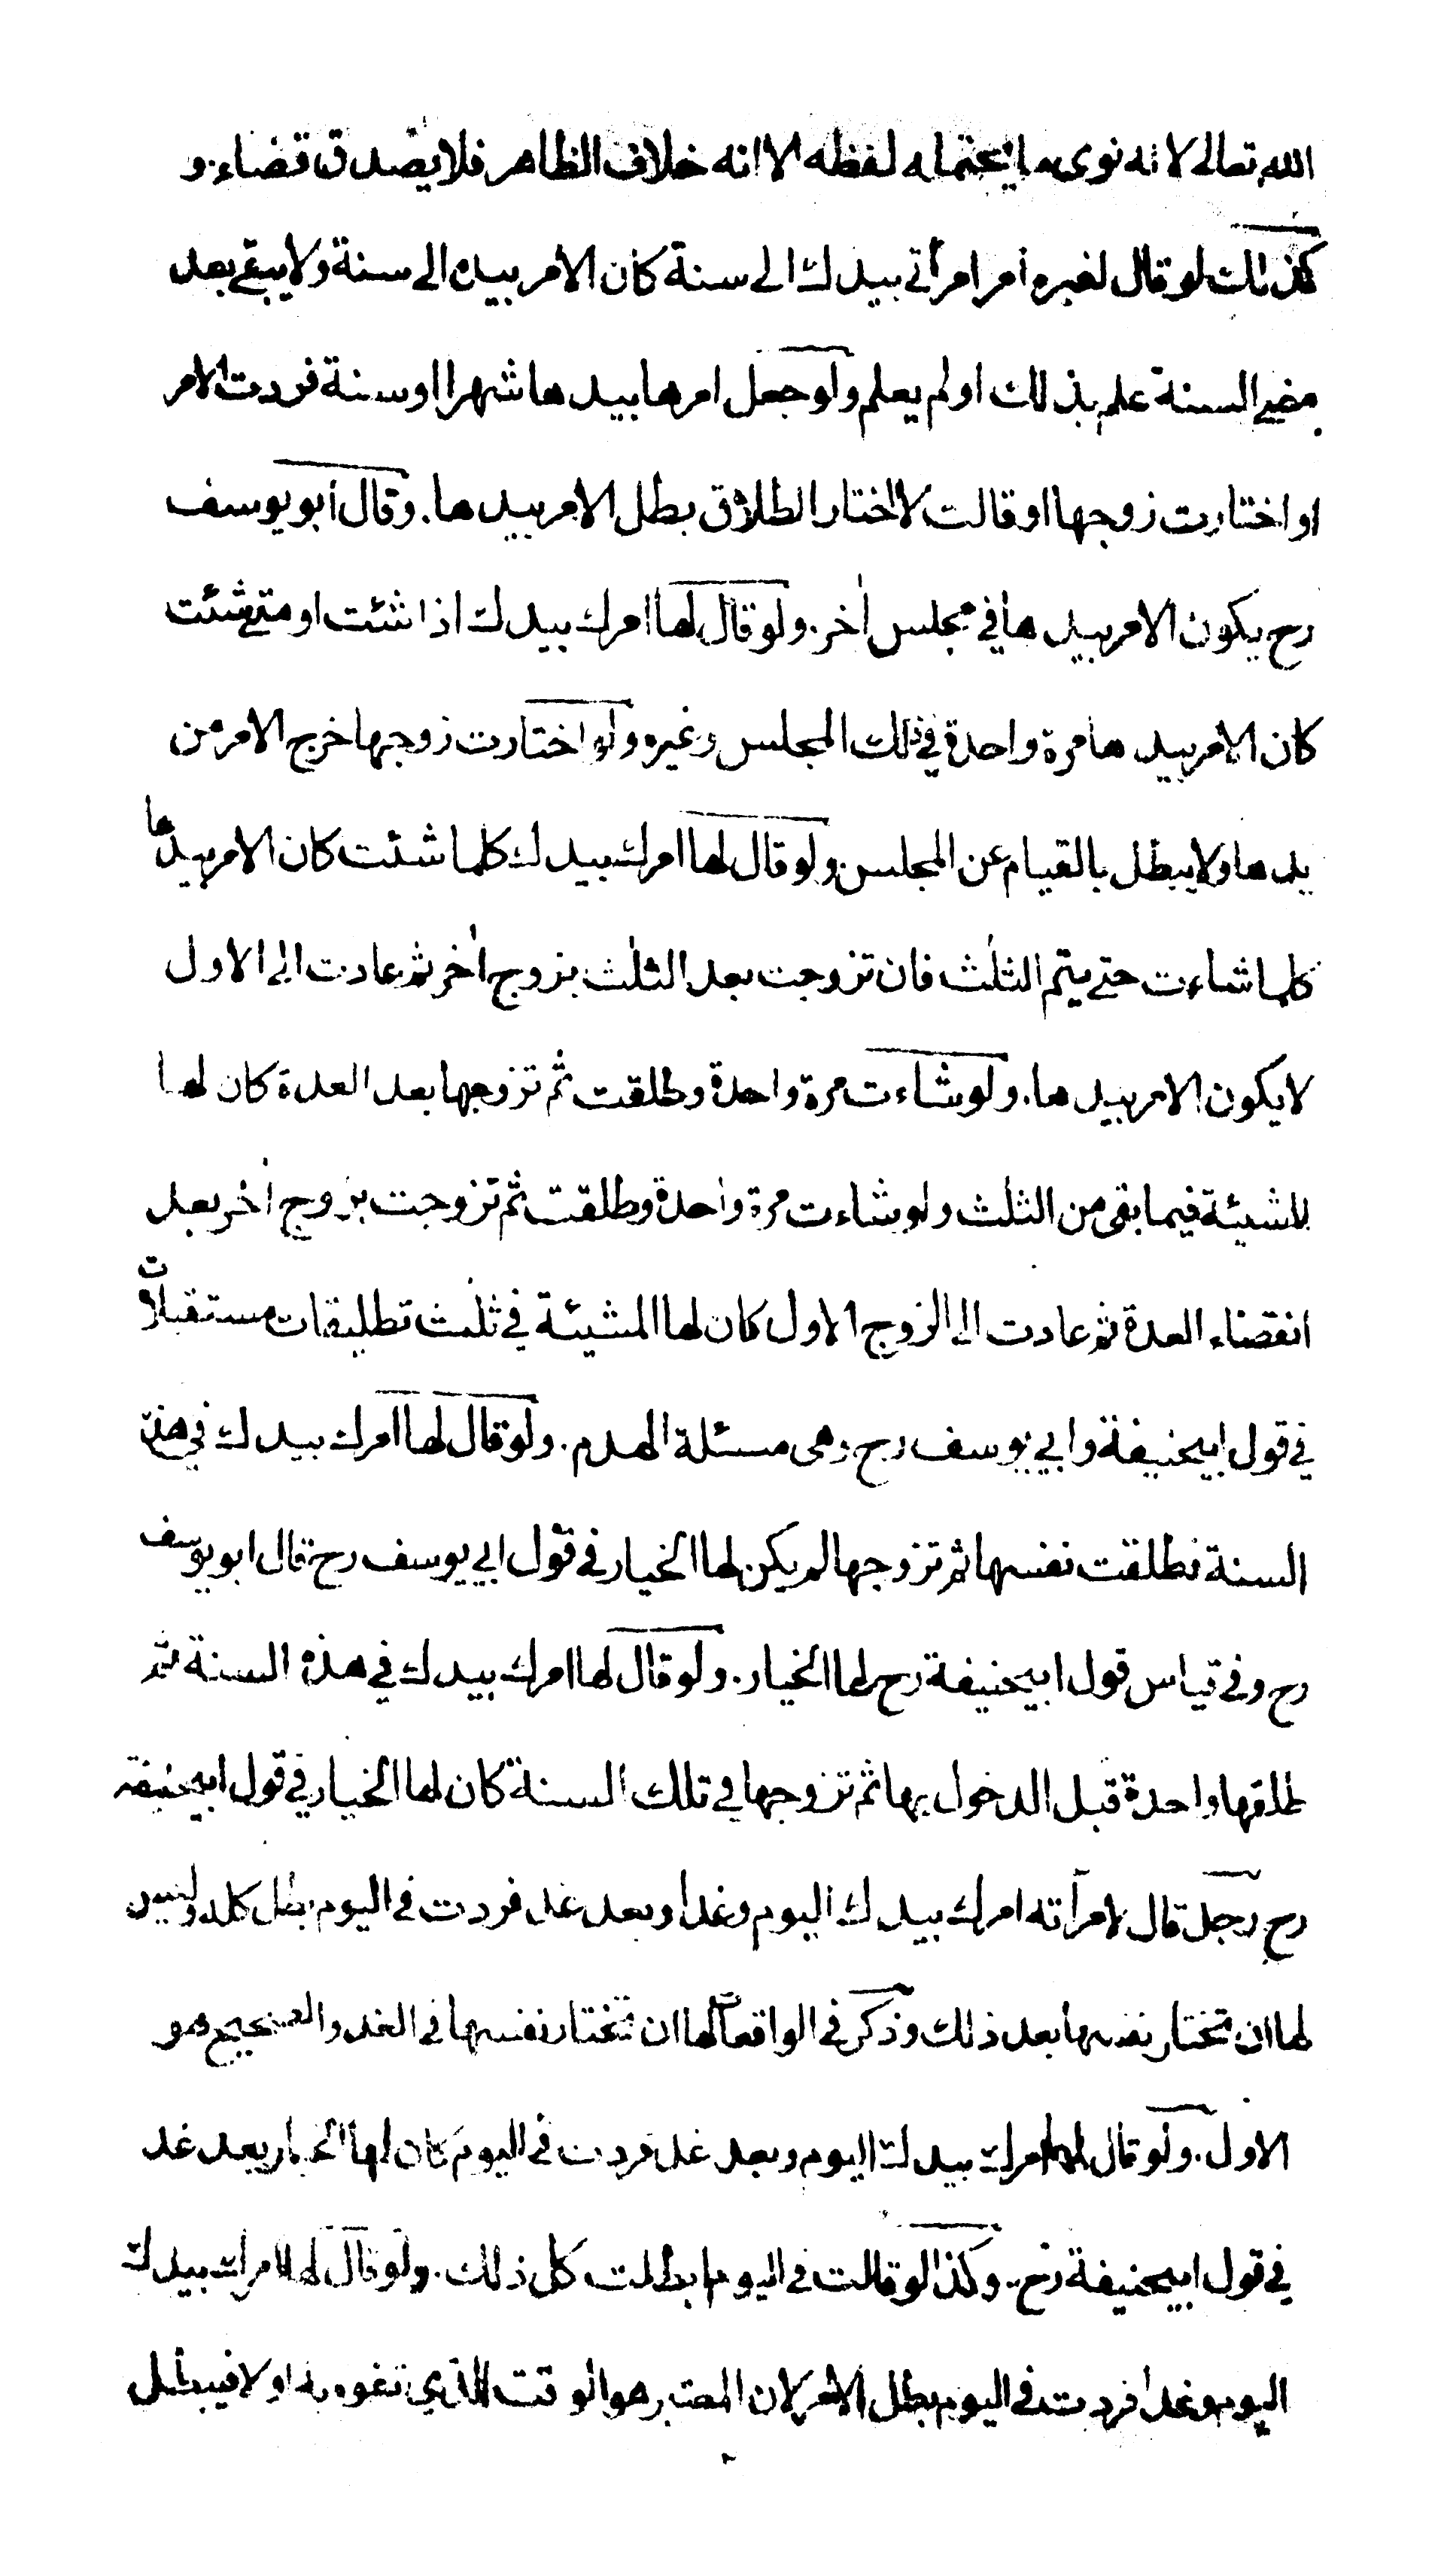 الله تعالى لانه نوى ما يحتمله لفظه الا انه خلاف الظاهر فلا يصدق قضاء و
كذلك لو قال لغيره أمر امرأتي بيدك الى سنة كان الامر بيده الى سنة ولا يبقى بعد
مضي السنة علم بذلك او لم يعلم ولو جعل امرها بيدها شهرا او سنة فردت الامر
او اختارت زوجها او قالت لا اختار الطلاق بطل الامر بيدها. وقال أبو يوسف
رح يكون الامر بيدها في مجلس أخر. ولو قال لها امرك بيدك اذا شئت او متى شئت
كان الامر بيدها مرة واحدة في ذلك المجلس وغيره ولو اختارت زوجها خرج الامر من
يدها ولا يبطل بالقيام عن المجلس. ولو قال لها امرك بيدك كلما شئت كان الامر بيدها
كلما شاءت حتى يتم الثلث فان تزوجت بعد الثلث بزوج أخر ثم عادت الى الاول
لا يكون الامر بيدها. ولو شاءت مرة واحدة وطلقت ثم تزوجها بعد العدة كان لها
المشيئة فيما بقى من الثلث ولو شاءت مرة واحدة وطلقت ثم تزوجت بزوج أخر بعد
انقضاء العدة ثم عادت الى الزوج الاول كان لها المشيئة في ثلث تطليقات مستقبلات
في قول ابيحنيفة وابي يوسف رح وهى مسئلة الهدم. ولو قال لها امرك بيدك في هذه
السنة فطلقت نفسها ثم تزوجها لم يكن لها الخيار في قول ابي يوسف رح قال ابو يوسف
رح وفي قياس قول ابيحنيفة رح لها الخيار. ولو قال لها امرك بيدك في هذه السنة ثم
طلقها واحدة قبل الدخول بها ثم تزوجها في تلك السنة كان لها الخيار في قول ابيحنيفة
رح رجل قال لامرأته امرك بيدك اليوم وغدا وبعد غد فردت في اليوم بطل كله وليس
لها ان تختار نفسها بعد ذلك وذكر في الواقعات لها ان تختار نفسها في الغد والصحيح هو
الاول. ولو قال لها امرك بيدك اليوم وبعد غد فردت في اليوم كان لها الخيار بعد غد
في قول ابيحنيفة رح. وكذا لو قالت في اليوم ابطلت كل ذلك. ولو قال لها امرك بيدك
اليوم وغدا فردت في اليوم بطل الامر لان المعتبر هو الوقت الذي تفوه به اولا فيبطل